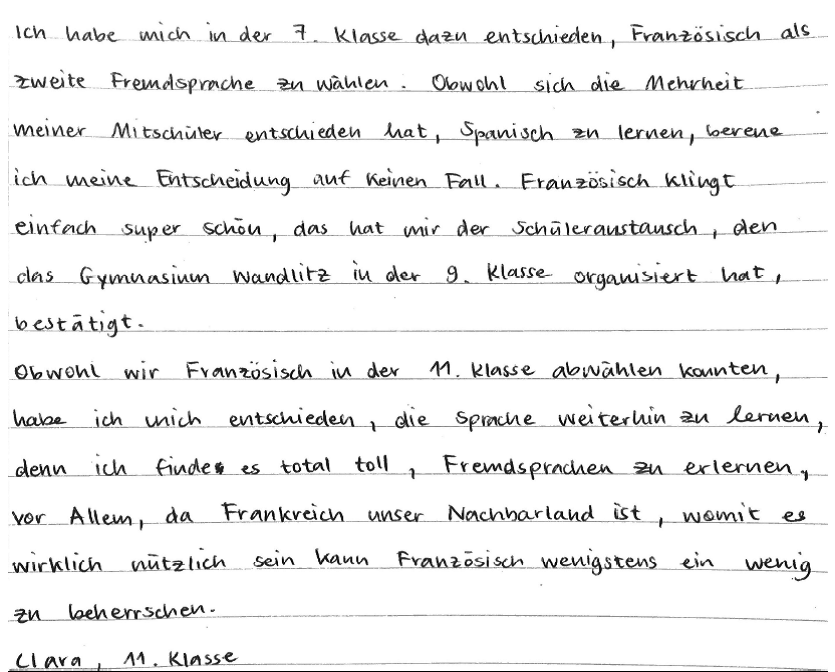 Ich habe mich in der 7. Klasse dazu entschieden, Französisch als
zweite Fremdsprache zu wählen. Obwohl sich die Mehrheit
meiner Mitschüler entschieden hat, Spanisch zu lernen, bereue
ich meine Entscheidung auf keinen Fall. Französisch klingt
einfach super schön, das hat mir der Schüleraustausch, den
das Gymnasium Wandlitz in der 9. Klasse organisiert hat,
bestätigt.
Obwohl wir Französisch in der 11. Klasse abwählen konnten,
habe ich mich entschieden, die Sprache weiterhin zu lernen,
denn ich finde es total toll, Fremdsprachen zu erlernen,
vor Allem, da Frankreich unser Nachbarland ist, womit es
wirklich nützlich sein kann Französisch wenigstens ein wenig
zu beherrschen.
Clara, 11. Klasse